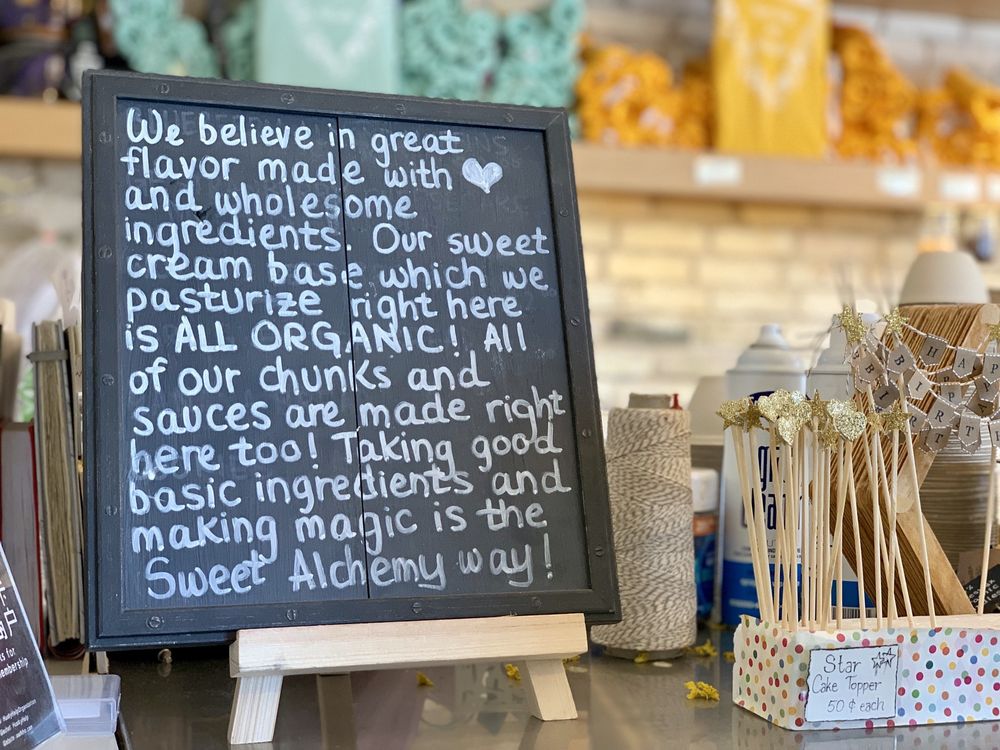 We believe in great
flavor made with ♡
and wholesome
ingredients. Our sweet
cream base which we
pasturize right here
is ALL ORGANIC! All
of our chunks and
sauces are made right
here too! Taking good
basic ingredients and
making magic is the
Sweet Alchemy way!
Star
Cake Topper
50¢ each